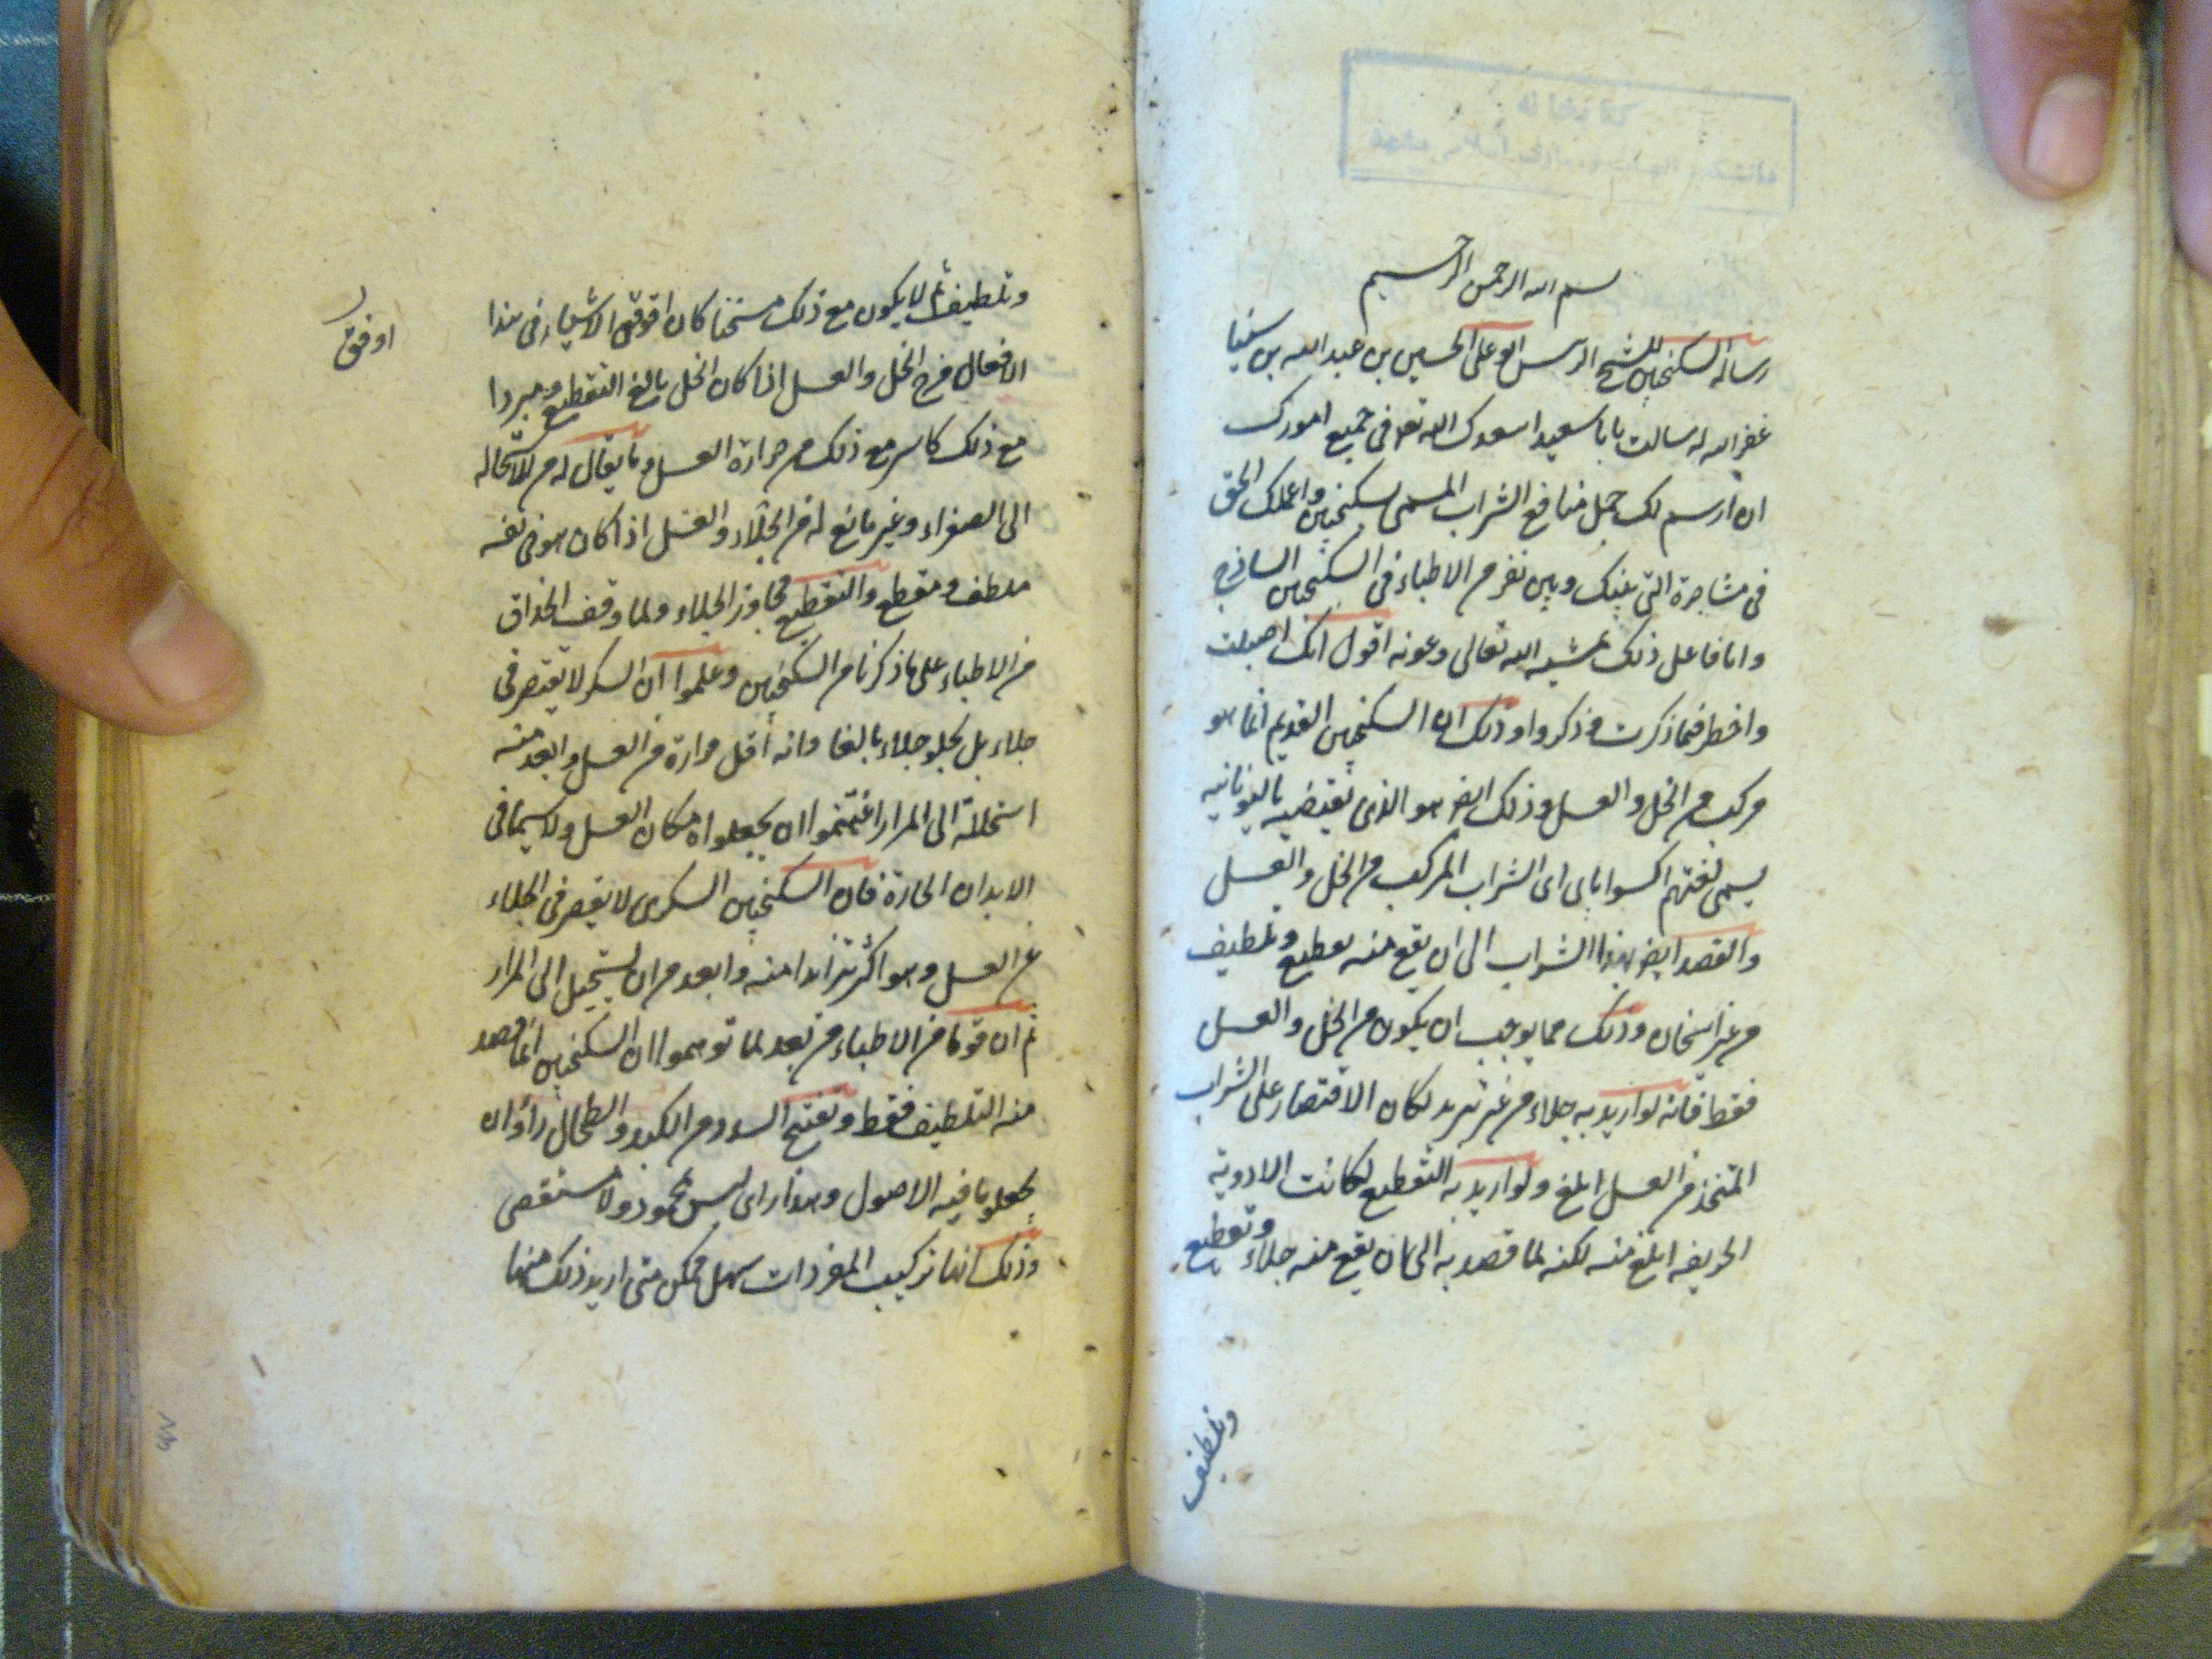 بسم الله الرحمن الرحيم
رسالة السكنجبين للشيخ الرئيس ابو على الحسين بن عبد الله بن سينا
غفر الله له سالت يا با سعيد اسعدك الله تعو فى جميع امورك
ان ارسم لك جمل منافع الشراب المسمى بسكنجبين واعملك الحق
فى مشاجرة التى بينك وبين نفر من الاطباء فى السكنجبين الساذج
وانا فاعل ذلك بمشية الله تعالى وعونه اقول انك اصبت
واخطر فيما ذكرت وذكروا وذلك ان السكنجبين القديم انما هو
مركب من الخل والعسل وذلك ايضا هو الذى يقتضيه باليونانيه
يسمى لغتهم اكسوا بالى اى الشراب المركب من الخل والعسل
والقصد ايضا بهذا الشراب الى ان يقع منه تقطيع وتلطيف
من غير اسخان وذلك مما يوجب ان يكون من الخل والعسل
فقط فانه لو اريد به جلاء من غير تبريد لكان الاقتصار على الشراب
المتخذ من العسل ابلغ ولو اريد به التقطيع لكانت الادوية
الحريفه ابلغ منه لكنه لما قصد به الى ان يقع منه جلاء وتقطيع
وتلطيف
وتلطيف لا يكون مع ذلك مسخنا كان اوفق الاشياء فى هذا
اوفق
الافعال من الخل والعسل اذا كان الخل بالغ التقطيع ومبردا
مع ذلك كاسر مع ذلك من حرارة العسل وما يقال له من الاستحاله
الى الصفراء وغير مانع له من الجلاء والعسل اذا كان هو فى نفسه
ملطف ومقطع والتقطيع مجاوز الجلاء ولما وقف الحذاق
من الاطباء على ما ذكرنا من السكنجبين وعلموا ان السكر لا يقتصر فى
جلاء بل يجلو جلاء بالغا وانه أقل حرارة من العسل وابعد منه
استحالة الى المرار اغتنموا ان يجعلوه مكان العسل ولا سيما فى
الابدان الحارة فان السكنجبين السكرى لا يقصر فى الجلاء
عن العسل وهو اكثر تبريدا منه وابعد من ان يستحيل الى المرار
ثم ان قوما من الاطباء من بعد لما توهموا ان السكنجبين انما قصد
منه التلطيف فقط وتفتيح السدد من الكبد والطحال رأوا ان
يجعلوا فيه الاصول وهذا راى ليس بمحمود ولا مستقصى
وذلك انما تركيب المفردات سهل ممكن متى اريد ذلك منها